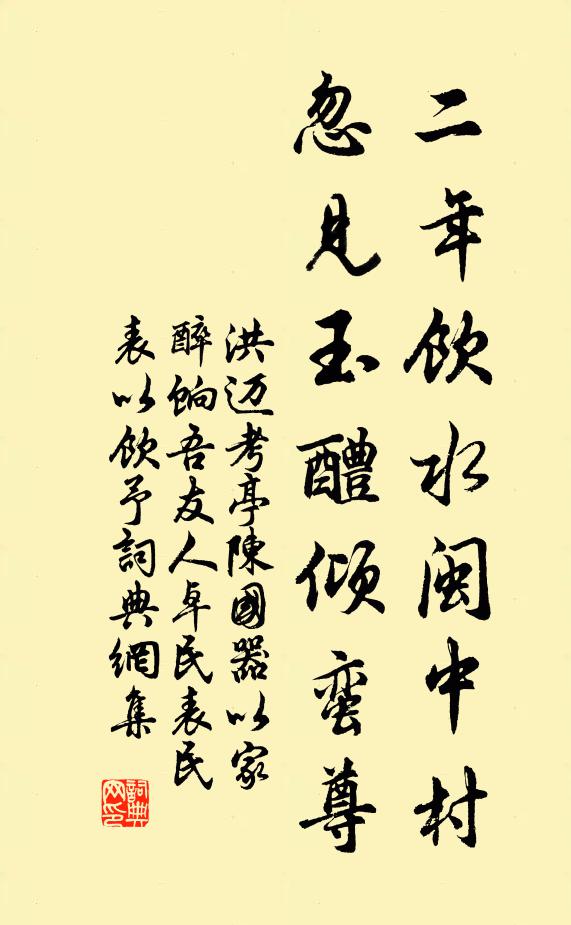 二年饮水闽中村
忽见玉醴倾蛮尊
洪迈考亭陳國器以家
醉餉吾友人卓民表民
表以饮予詞典網集
詞典网印